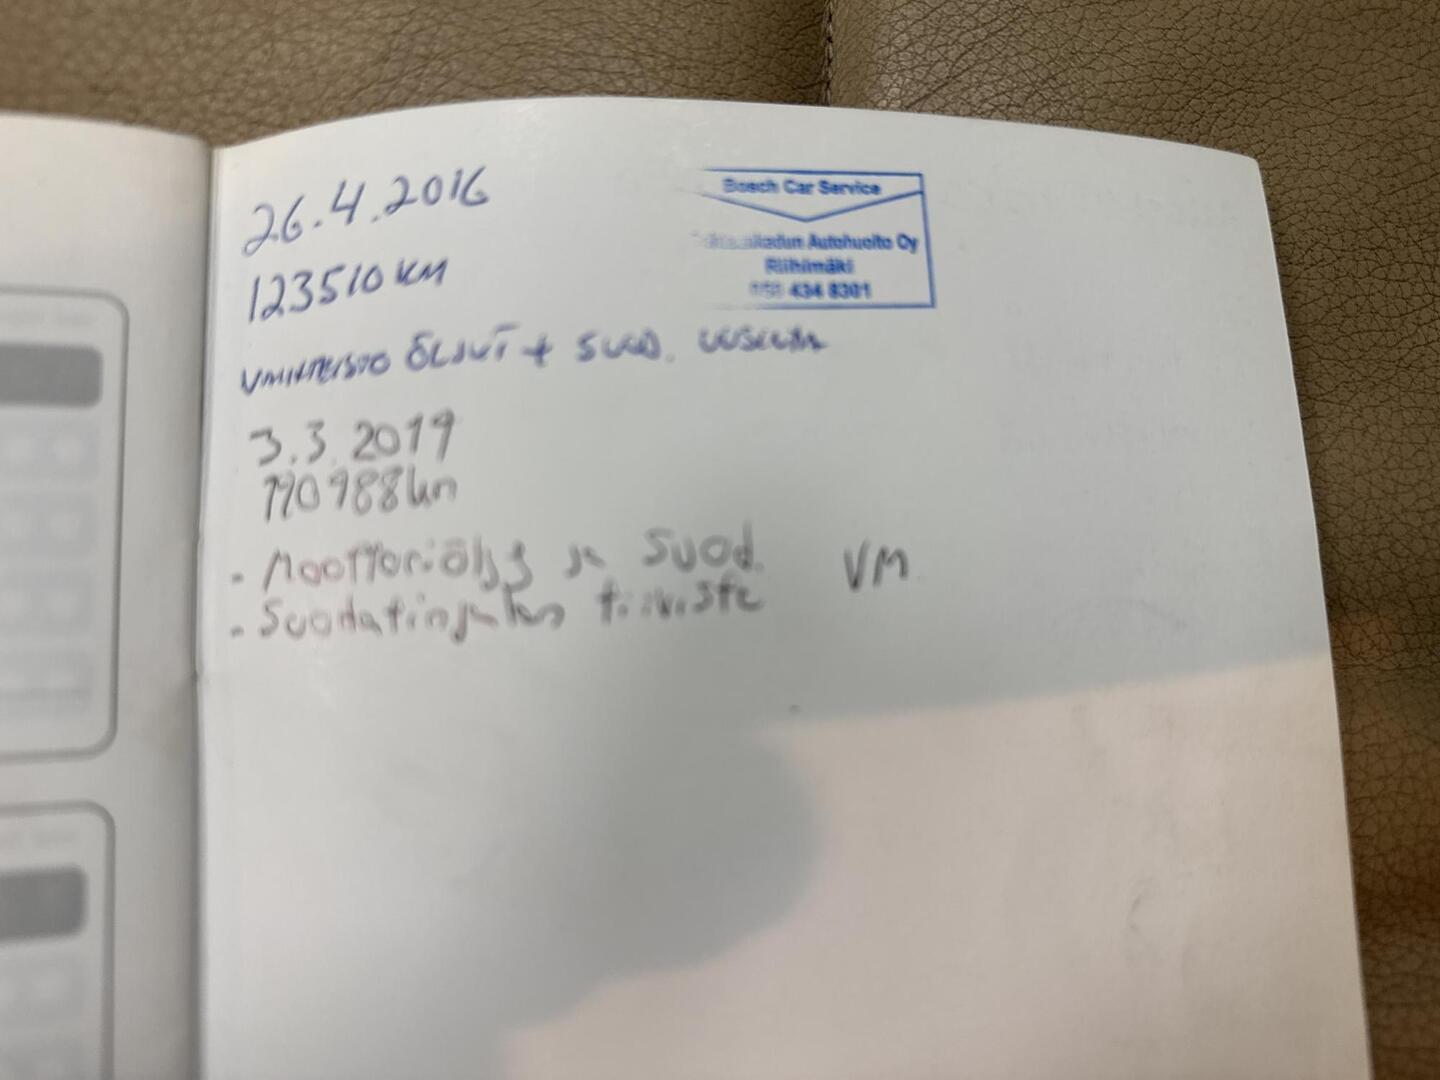 26.4.2016
123510 KM
ÖLJYT + SUOD.
Bosch Car Service
Autohuolto Oy
Riihimäki
434 8301
3.3.2019
190988km
• Moottoriöljy ja Suod. VM
• Suodatinjalan tiiviste